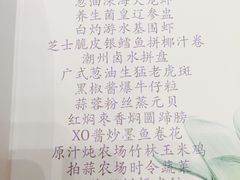 葱油深海大龙虾
养生菌皇辽参盅
白灼游水基围虾
芝士脆皮银鳕鱼拼椰汁卷
潮州卤水拼盘
广式葱油生猛老虎斑
黑椒酱爆牛仔粒
蒜蓉粉丝蒸元贝
红焖枣香焖圆蹄膀
XO酱炒墨鱼卷花
原汁炖农场竹林玉米鸡
拍蒜农场时令蔬菜